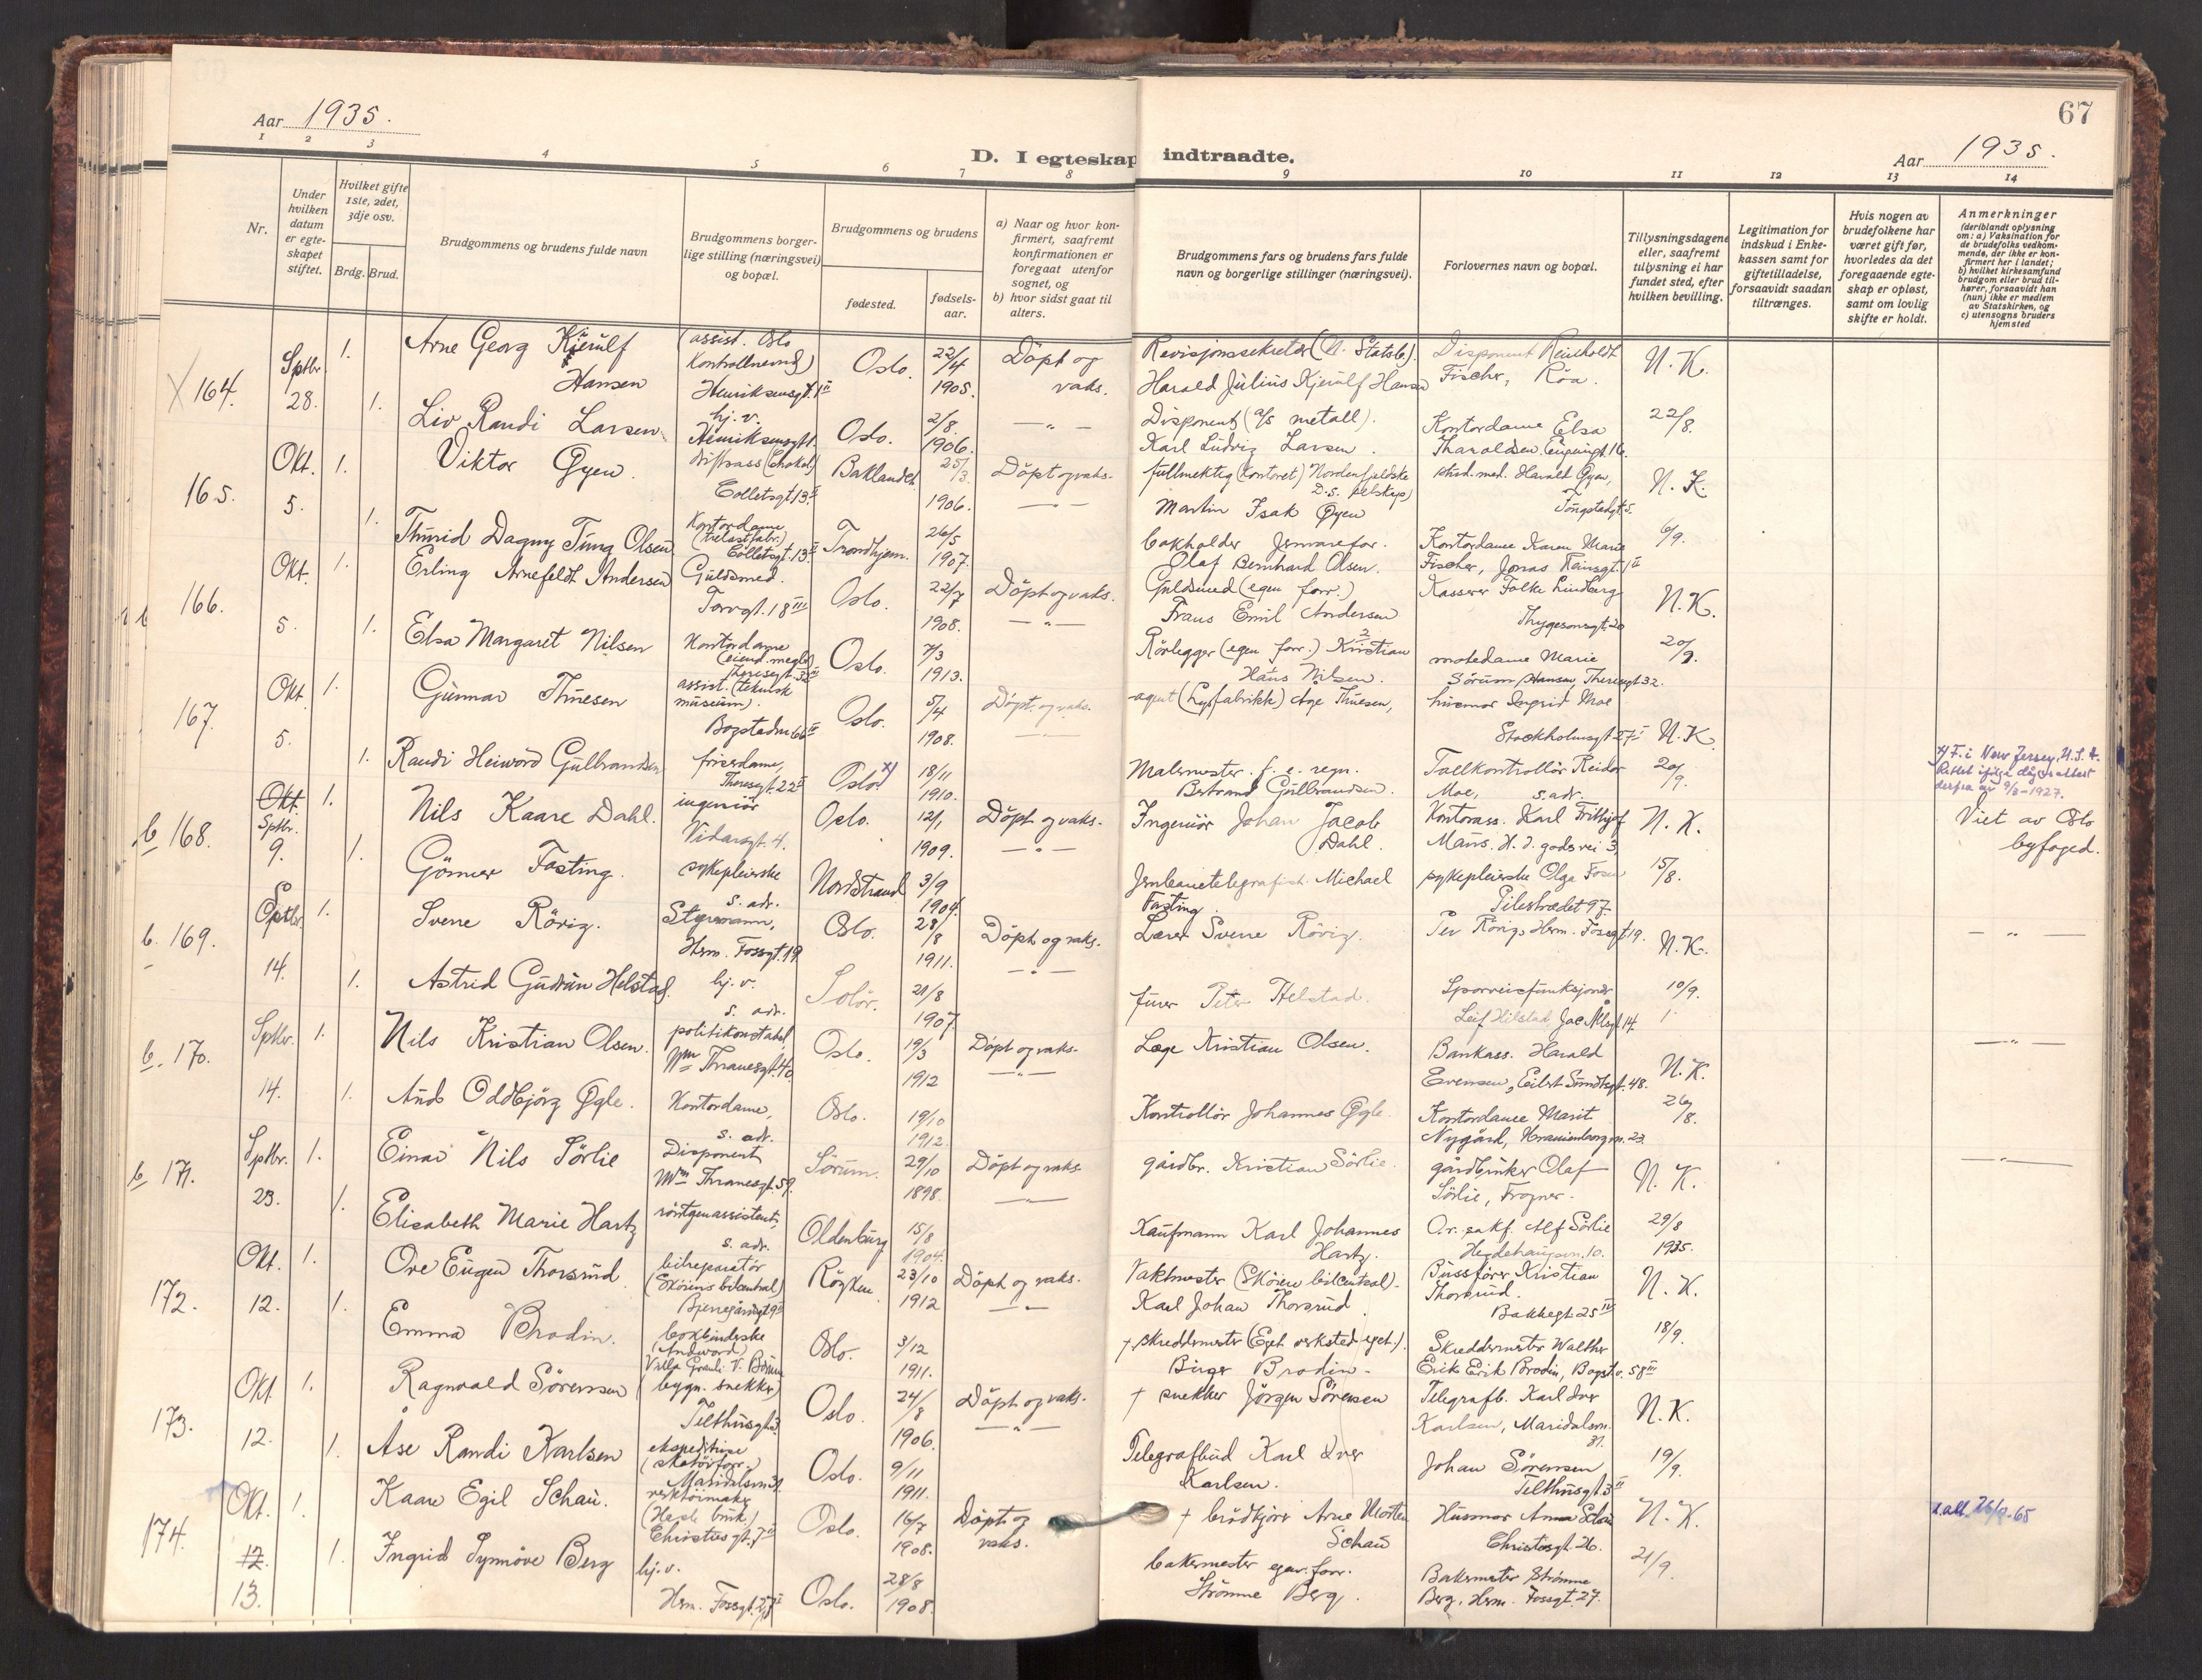 Aar 1935.
67
Aar 1935.
D. I egteskap indtraadte.
1 2 3 4 5 6 7 8 9 10 11 12 13 14
Nr.
Under hvilken datum er egteskapet stiftet.
Hvilket gifte 1ste, 2det, 3dje osv.
Brdg. Brud.
Brudgommens og brudens fulde navn
Brudgommens borgerlige stilling (næringsvei) og bopæl.
Brudgommens og brudens
fødested.
fødselsaar.
a) Naar og hvor konfirmert, saafremt konfirmationen er foregaat utenfor sognet, og
b) hvor sidst gaat til alters.
Brudgommens fars og brudens fars fulde navn og borgerlige stillinger (næringsvei).
Forlovernes navn og bopæl.
Tillysningsdagene eller, saafremt tillysning ei har fundet sted, efter hvilken bevilling.
Legitimation for indskud i Enkekassen samt for giftetilladelse, forsaavidt saadan tiltrænges.
Hvis nogen av brudefolkene har været gift før, hvorledes da det foregaaende egteskap er opløst, samt om lovlig skifte er holdt.
Anmerkninger
(deriblandt oplysning om: a) Vaksination for de brudefolks vedkommende, der ikke er konfirmert her i landet; b) hvilket kirkesamfund brudgom eller brud tilhører, forsaavidt han (hun) ikke er medlem av Statskirken, og c) utensogns bruders hjemsted
164. Sptbr. 28. 1. Arne Georg Kjerulf Hansen assist. Oslo Kontrollnevnd) Henriksensgt. 1 II Oslo. 22/4 1905. Döpt og vaks. Revisjonssekretær (N. Statsb.). Harald Julius Kjerulf Hansen Disponent Reinholdt Fischer, Röa. N. K.
1. Liv Randi Larsen hj. v. Henriksensgt 1. Oslo. 2/8. 1906. — " — Disponent (a/s metall). Karl Ludvig Larsen. Kontordame Elsa Tharaldsen, 16. 22/8.
165. Okt. 5. 1. Viktor Øyen. Collettsgt 13 II Baklandet 25/3. 1906. Döpt og vaks. fullmektig (kontoret) Nordenfjeldske D.S. selskap) Martin Isak Øyen stud. med. Harald Øyen, 5. N. K.
1. Thurid Dagny Tung Olsen Kontordame (trelastfabr.) Collettsgt. 13 II Trondhjem. 26/5 1907. — " — bokholder Jernvarefor. Olaf Bernhard Olsen. Kontordame Karen Marie Fischer, Jonas Reinsgt. 1 II 6/9.
166. Okt. 5. 1. Erling Arnefeldt Andersen Guldsmed. Torvgt. 18 III Oslo. 22/7 1908. Döpt og vaks. Guldsmed (egen forr.) Frans Emil Andersen Kasserer Folke Lindberg Thygesonsgt. 20 N. K.
1. Elsa Margaret Nilsen Kontordame (eiend. megler) Theresegt. 32 Oslo. 7/3 1913. — " — Rörlegger (egen forr.) Kristian Hans Nilsen. motedame Marie Sörum Hansen, Theresegt 32. 20/9.
167. Okt 5. 1. Gunnar Thuesen assist. (teknisk museum). Bogstadvn 66 II Oslo. 5/4 1908. Döpt og vaks. agent (Lysfabrikk) Aage Thuesen, husmor Ingrid Moe Stockholmsgt 27 I N. K.
1. Randi Heiword Gulbrandsen friserdame, Theresegt. 22 II Oslo. x) 18/11 1910. Malermester f. e. regn. Bertrand Gulbrandsen. Tollkontrollör Reidar Moe, s. adr. 20/9.
x) F. i New Jersey, U.S.A. Rettet ifölge dåpsattest derfra av 9/8-1927.
b. 168. Okt. Sptbr. 9. 1. Nils Kaare Dahl. ingeniör Vidarsgt. 4. Oslo. 12/1 1909. Döpt og vaks. Ingeniör Johan Jacob Dahl. Kontorass. Karl Frithjof Maurs. H. J. godsvei 3, N. K. Viet av Oslo byfoged.
1. Gönner Fasting. sykepleierske s. adr. Nordstrand 3/9 1904. — " — Jernbanetelegrafist Michael Fasting. sykepleierske Olga Pilestrædet 97. 15/8.
b. 169. Sptbr. 14. 1. Sverre Rörvig. Styrmann, Herm. Fossgt. 19. Oslo. 28/8 1911. Döpt og vaks. Lærer Sverre Rörvig. Per Rörvig, Herm. Fossgt. 19. N. K. — " —
1. Astrid Gudrun Helstad. hj. v. s. adr. Solör. 21/8 1907. — " — furer Peter Helstad. Sporveisfunksjonær Leif Helstad, 14. 10/9.
b. 170. Sptbr. 14. 1. Nils Kristian Olsen. politikonstabel, Wm Thranesgt. 40 Oslo. 19/3 1912 Döpt og vaks. Læge Kristian Olsen. Bankass. Harald Evensen, Eilert Sundtsgt. 48. N. K. — " —
1. Aud Oddbjörg Øgle. Kontordame, s. adr. Oslo. 19/10 1912. — " — Kontrollör Johannes Øgle. Kontordame Marit Nygård, Uranienborgvn. 23. 26/8.
b. 171. Sptbr. 23. 1. Einar Nils Sörlie Disponent Wm Thranesgt. 59. Sörum. 29/10 1898. Döpt og vaks. gårdbr. Kristian Sörlie. gårdbruker Olaf Sörlie, Frogner. N. K. — " —
1. Elisabeth Marie Hartz röntgenassistent, s. adr. Oldenburg 15/8 1904. — " — Kaufmann Karl Johannes Hartz. O.r. sakf. Alf Sörlie Hegdehaugsvn. 10. 29/8 1935.
172. Okt. 12. 1. Ove Eugen Thorsrud bilreparatör (Sköiens bilcentral) Bjerregårdsgt 9 Röyken 23/10 1912 Döpt og vaks. Vaktmester (Sköien bilcentral). Karl Johan Thorsrud. Bussförer Kristian Thorsrud. Bakkegt. 25 III N. K.
1. Emma Brodin. bokbinderske (Andvord) Villa V. Bærum Oslo. 3/12 1911. — " — + skreddermester (Eget verksted eget.). Birger Brodin. Skreddermester Walther Erik Brodin, Bogst.v. 58 III 18/9.
173. Okt 12. 1. Ragnvald Sörensen (bygn. snekker) Telthusgt 3 Oslo. 24/8 1906. Döpt og vaks. + snekker Jörgen Sörensen Telegrafb. Karl Iver Karlsen, Maridalsvn. 31. N. K.
1. Åse Randi Karlsen ekspeditrise (skotöiforr.) Maridalsvn 31. Oslo. 9/11 1911. — " — Telegrafbud Karl Iver Karlsen. Johan Sörensen Telthusgt 3 II 19/9.
174. Okt. 12. 13. 1. Kaare Egil Schau. verktöimaker Christiesgt. 7 II Oslo. 16/7 1908. Döpt og vaks. + brödkjörer Arne Morten Schau Husmor Anna Schau Christiesgt. 26. N. K. 26/9-65
1. Ingrid Synnöve Berg hj. v. Herm. Fossgt. 27 II Oslo. 28/8 1908. bakermester egen forr. Strömme Berg. Bakermester Strömme Berg, Herm. Fossgt. 27. 21/9.